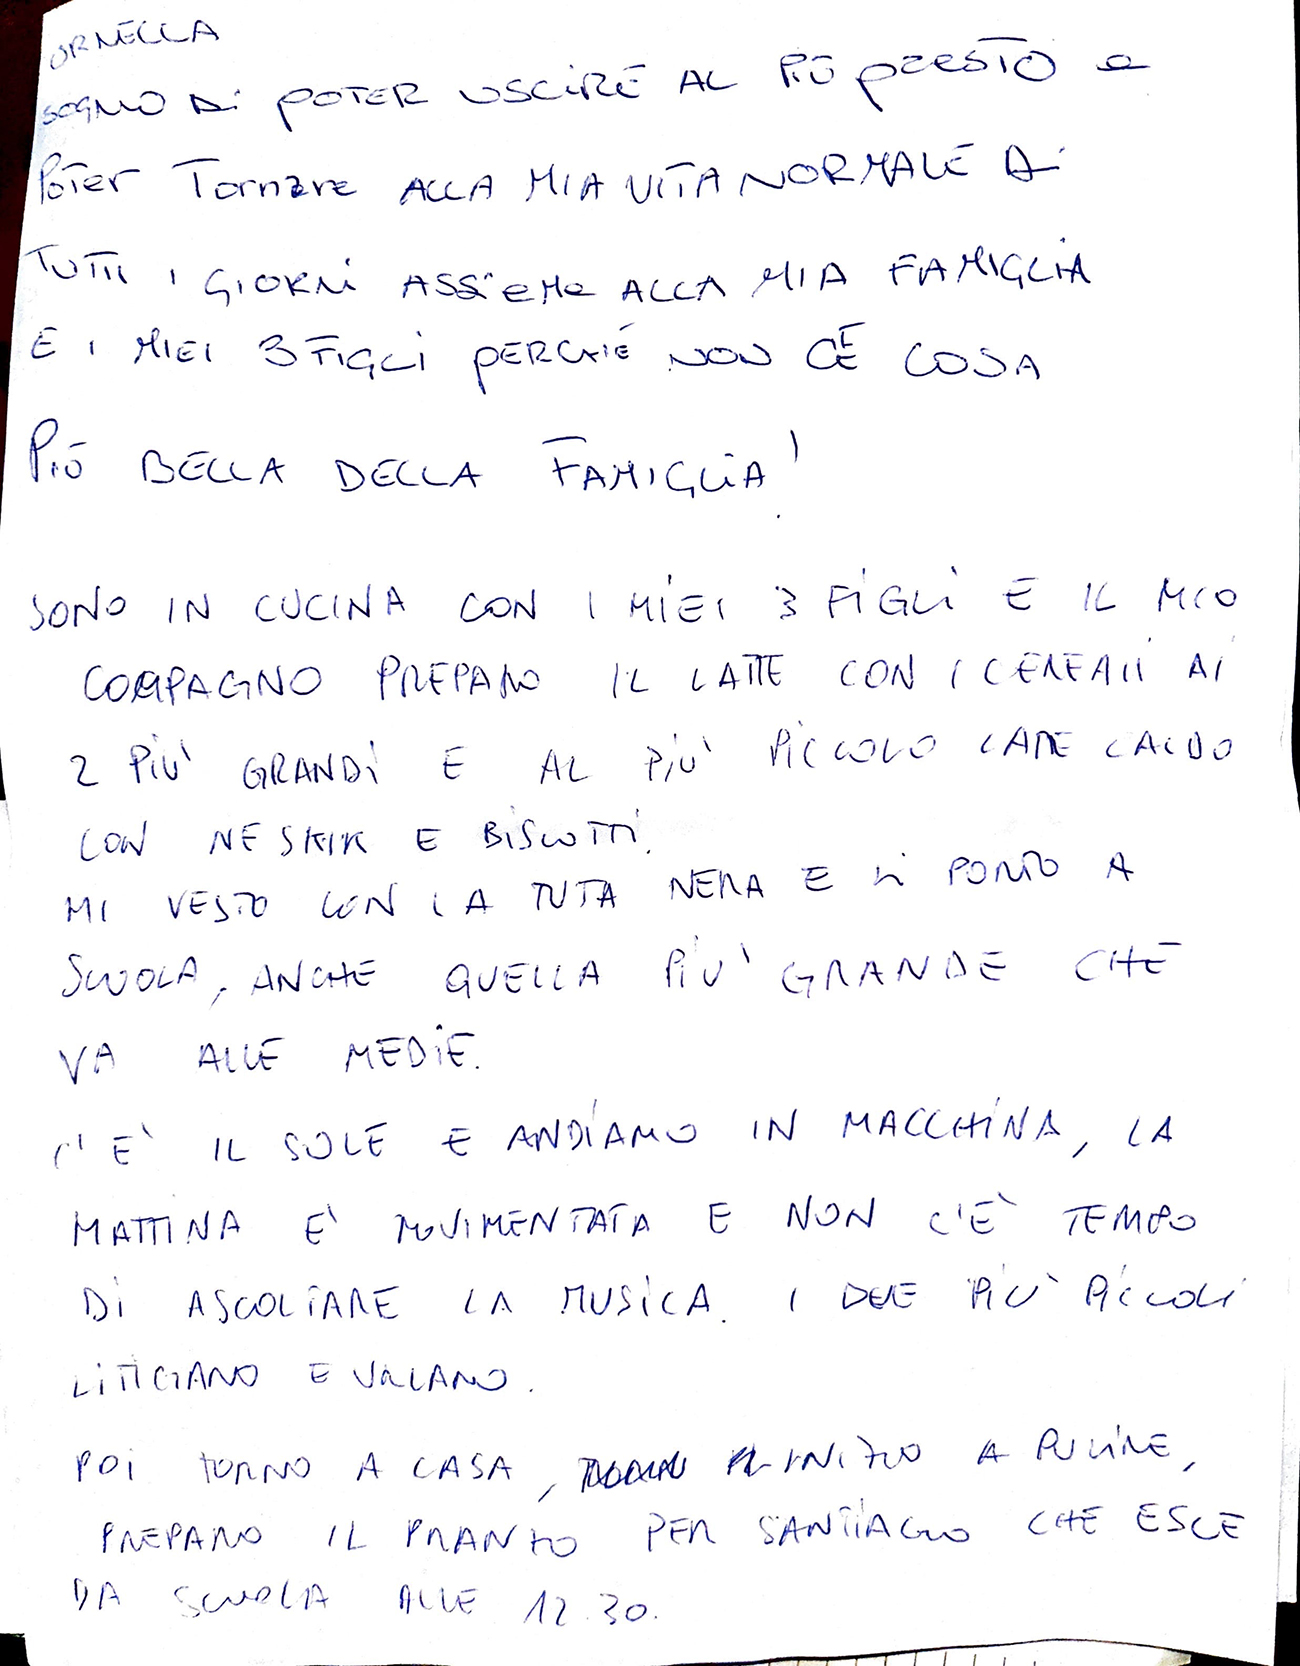 ORNELLA
SOGNO Di POTER USCIRE AL PIÙ PRESTO e
POTER Tornare ALLA MIA VITA NORMALE Di
TUTTI I GIORNI ASSIEME ALLA MIA FAMIGLIA
E I MIEI 3 FIGLI PERCHÉ NON CÈ COSA
PIÙ BELLA DELLA FAMIGLIA!
SONO IN CUCINA CON I MIEI 3 FIGLI E IL MIO
COMPAGNO PREPARO IL LATTE CON I CEREALI AI
2 PIU' GRANDI E AL PIU' PICCOLO LATTE CALDO
CON NESKIK E BISCOTTI.
MI VESTO CON LA TUTA NERA E LI PORTO A
SCUOLA, ANCHE QUELLA PIU' GRANDE CHE
VA ALLE MEDIE.
C'E' IL SOLE E ANDIAMO IN MACCHINA, LA
MATTINA E' MOVIMENTATA E NON C'E' TEMPO
DI ASCOLTARE LA MUSICA. I DUE PIU' PICCOLI
LITIGANO E URLANO.
POI TORNO A CASA, INIZIO A PULIRE,
PREPARO IL PRANZO PER SANTIAGO CHE ESCE
DA SCUOLA ALLE 12.30.